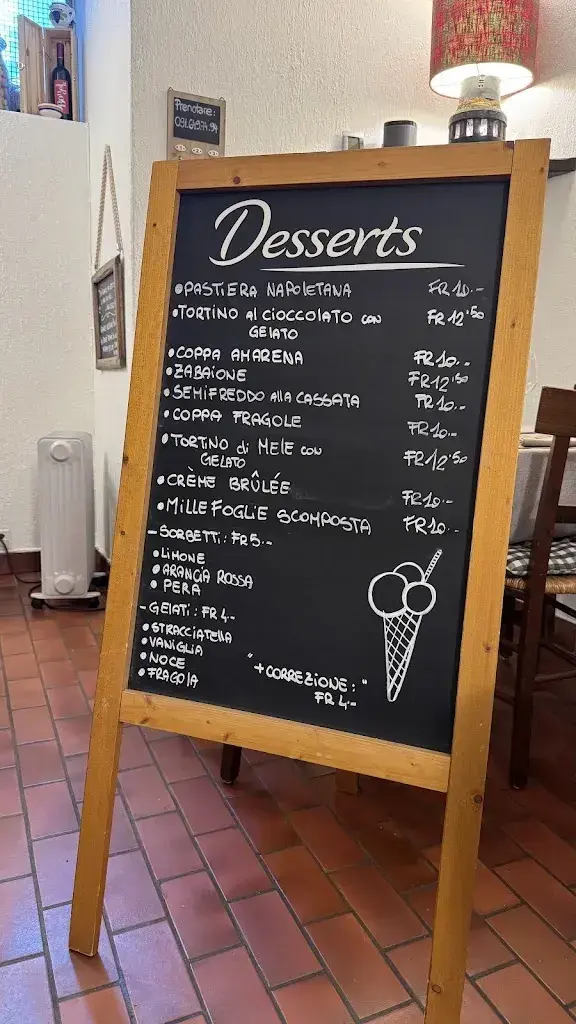 Prenotare:
091.649.74.94
Desserts
•PASTIERA NAPOLETANA FR 10.-
•TORTINO al CIOCCOLATO con FR 12'50
GELATO
•COPPA AMARENA FR 10.-
•ZABAIONE FR 12'50
•SEMIFREDDO alla CASSATA FR 10.-
•COPPA FRAGOLE FR 10.-
•TORTINO di MELE con FR 12'50
GELATO
•CRÈME BRÛLÉE FR 10.-
•MILLE FOGLIE SCOMPOSTA FR 10.-
-SORBETTI: FR 5.-
•LIMONE
•ARANCIA ROSSA
•PERA
-GELATI: FR 4.-
•STRACCIATELLA
•VANIGLIA
•NOCE
•FRAGOLA
"+CORREZIONE:"
FR 4.-